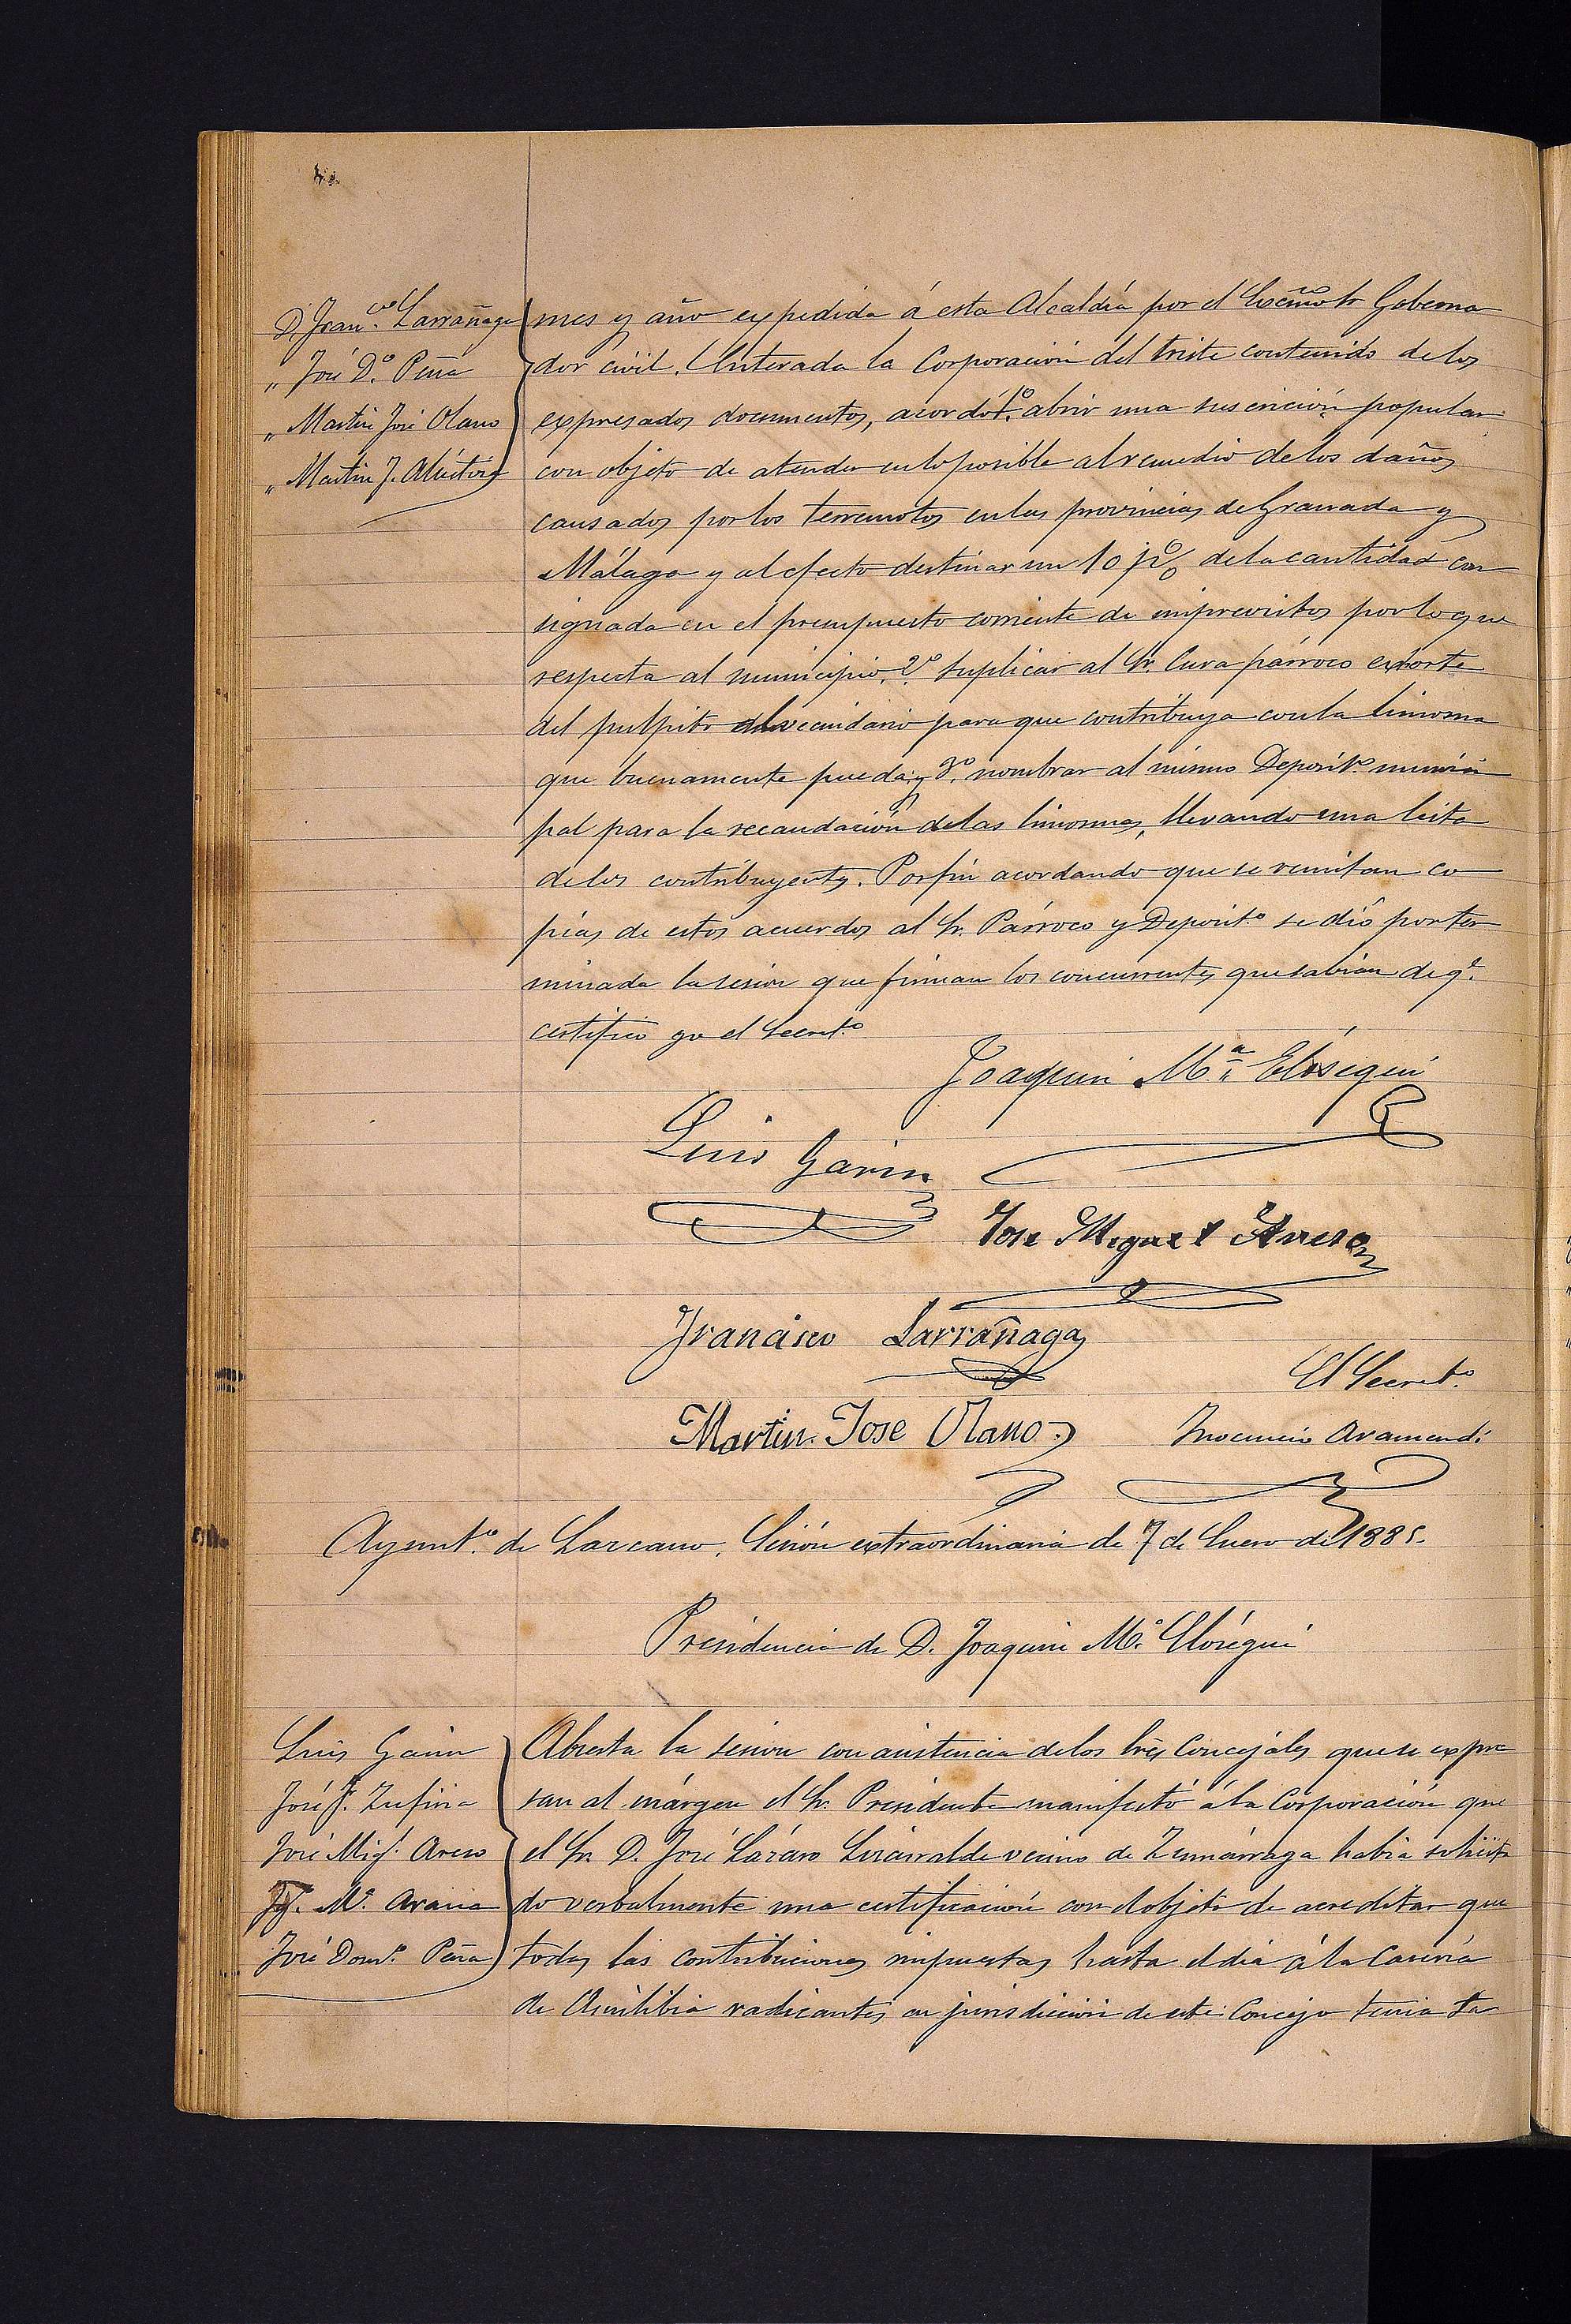 D. Fran.co Larrañaga
„ José D.o Peña
„ Martin José Olano
„ Martin J.
mes y año expedida á esta Alcaldía por el Excmo Sr Goberna
dor civil. Enterada la Corporación del triste contenido de los
expresados documentos, acordó 1.o abrir una suscrición popular
con objeto de atender en lo posible al remedio de los daños
causados por los terremotos en las provincias de Granada y
Málaga y al efecto destinar un 10 p% de la cantidad con
signada en el presupuesto corriente de imprevistos por lo que
respecta al municipio, 2.o suplicar al Sr. Cura párroco exhorte
del pulpito al vecindario para que contribuya con la limosna
que buenamente pueda; y 3.o nombrar al mismo Deposit.o munici
pal para la recaudación de las limosnas, llevando una lista
de los contribuyentes. Por fin acordando que se remitan co
pias de estos acuerdos al Sr. Párroco y Deposit.o se dió por ter
minada la sesion que firman los concurrentes que sabian de q.e
certifico yo el Secret.o
Joaquin M.a Elósegui
Luis Garin
Jose Miguel Areso
Francisco Larrañaga
El Secret.o
Martin Jose Olano
Inocencio Aramendi
Ayunt.o de Lazcano. Sesión extraordinaria de 7 de Enero de 1885.
Presidencia de D. Joaquin M.a Elósegui
Luis Garin
José J. Zufiria
José Mig.l Areso
J. M.a Arana
José Dom.o Peña
Abierta la sesion con asistencia de los Sres Concejales que se expre
san al márgen el Sr. Presidente manifestó á la Corporación que
el Sr. D. José Lázaro vecino de Zumárraga habia solicita
do verbalmente una certificación con el objeto de acreditar que
todas las contribuciones impuestas hasta el dia á la Caseria
de radicantes en jurisdiccion de este Concejo tenia sa